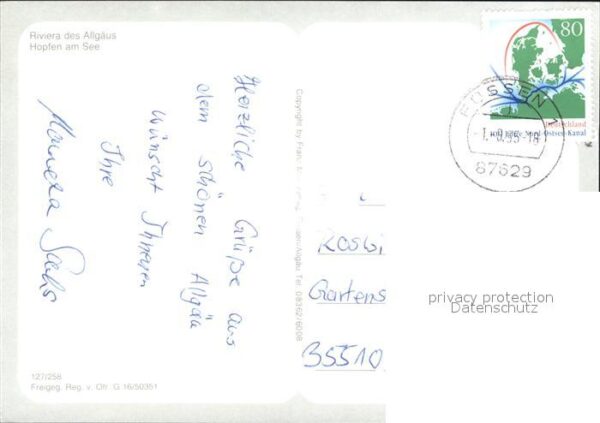 Riviera des Allgäus
Hopfen am See
Herzliche Grüße aus
dem schönen Allgäu
wünscht Ihnen
Ihre
Manuela
127/258
Freigeg. Reg. v. Ofr. G 16/50351
Copyright by Franz
Füssen/Allgäu Tel. 08362/6008
80
Deutschland
100 Jahre Nord-Ostsee-Kanal
FÜSSEN 1
87629
Roswi
Gartens
35510
privacy protection
Datenschutz